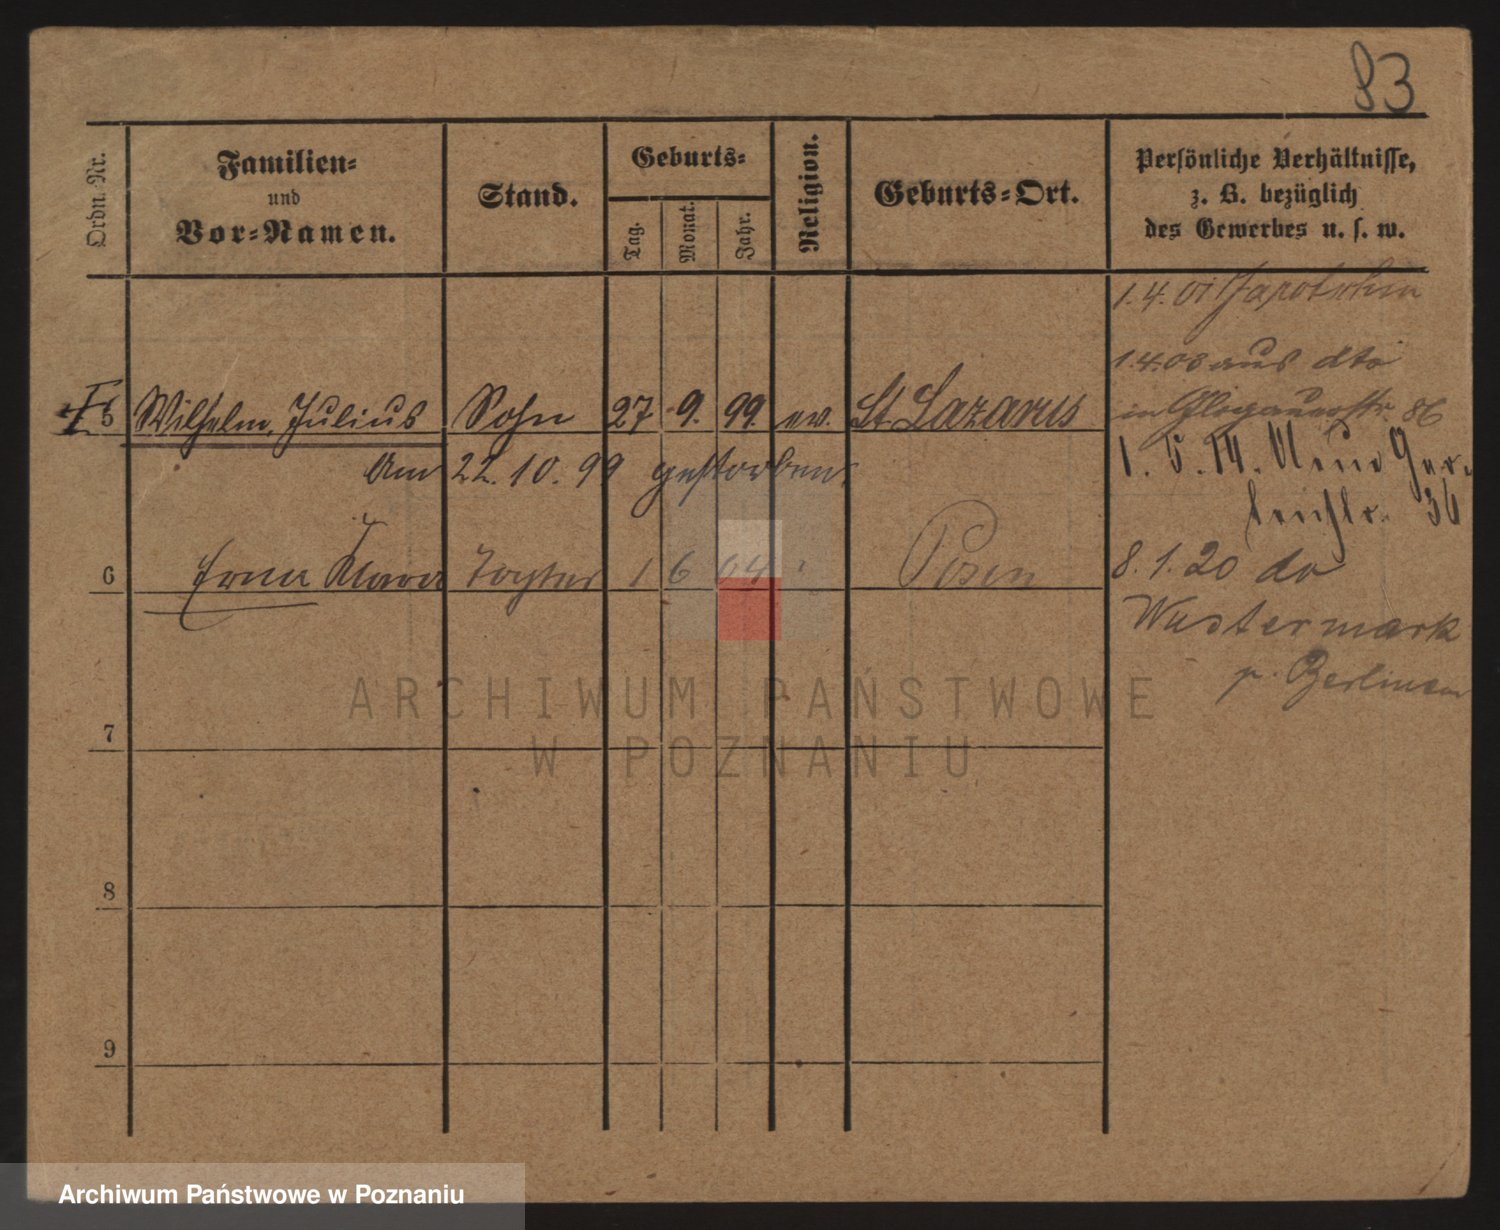 83
Ordn.-Nr.
Familien-
und
Vor-Namen.
Stand.
Geburts-
Tag.
Monat.
Jahr.
Religion.
Geburts-Ort.
Persönliche Verhältnisse,
z. B. bezüglich
des Gewerbes u. s. w.
1.4.01
1.4.03 aus dto
in Glogauerstr. 86
5 Wilhelm Julius Sohn 27 9. 99. ev. St. Lazarus
1. 5. 14. Neue Gar-
tenstr. 36
Am 22.10.99 gestorben.
6 Erna Klara Tochter 1 6 04 Posen
8.1.20 do
Wustermark
p. Berlin
7
8
9
ARCHIWUM PAŃSTWOWE
W POZNANIU
Archiwum Państwowe w Poznaniu